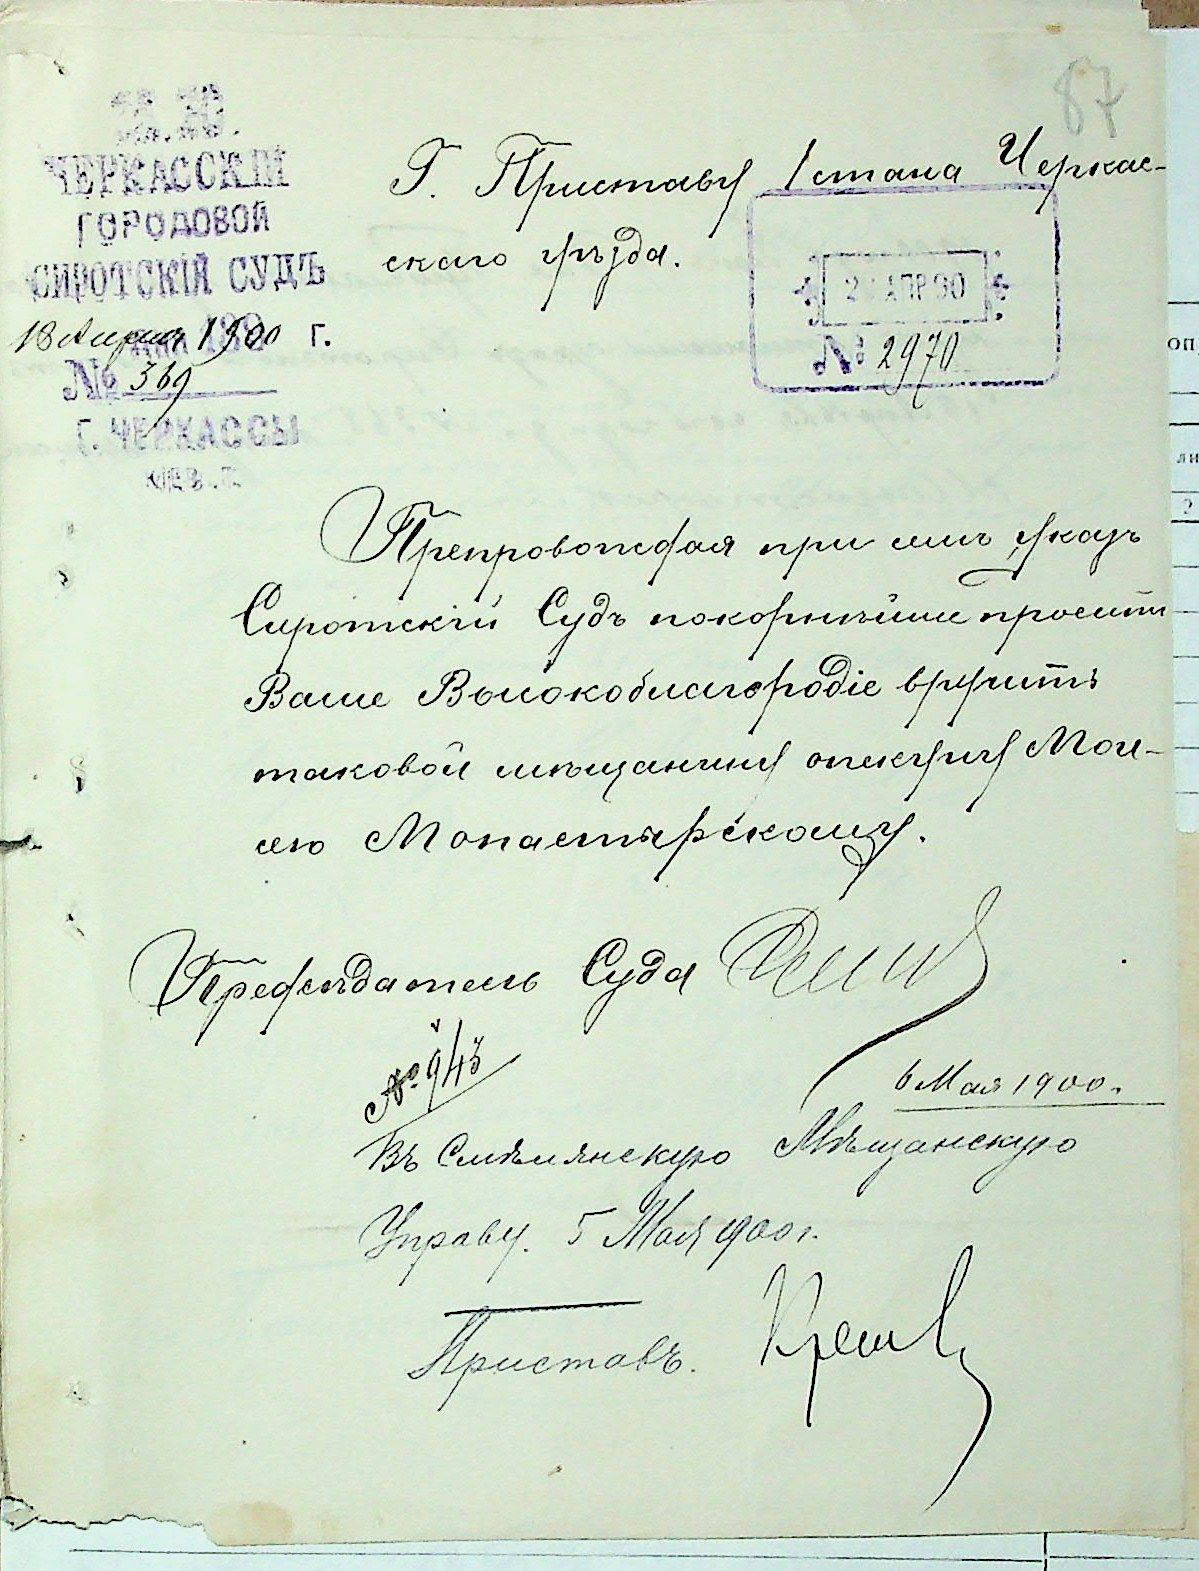 87
М. Ю.
ЧЕРКАССКІЙ
ГОРОДОВОЙ
СИРОТСКІЙ СУДЪ
18 Апреля 1900 г.
№ 369
Г. ЧЕРКАССЫ
КІЕВ. Г.
Г. Приставу 1 стана Черкас-
скаго уѣзда.
АПР 90
№ 2970
Препровождая при семъ указъ
Сиротскій Судъ покорнѣйше проситъ
Ваше Высокоблагородіе вручить
таковой мѣщанину опекуну Мои-
сею Монастырскому.
Председатель Суда
№ 943
6 Мая 1900.
Въ Смѣлянскую Мѣщанскую
Управу. 5 Мая 900 г.
Приставъ.